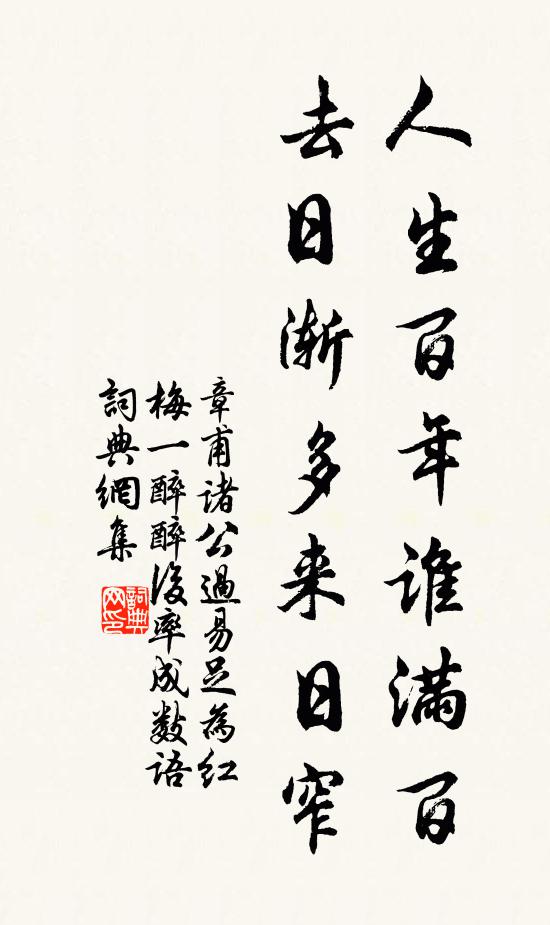 人生百年谁滿百
去日渐多来日窄
章甫诸公過易足為红
梅一醉醉後率成数语
詞典網集
詞典
网印